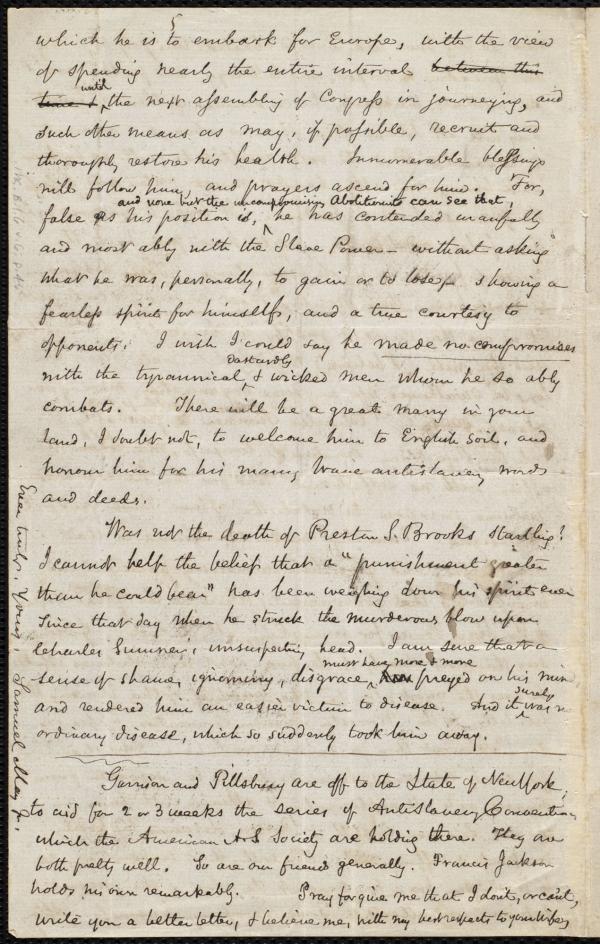 which he is to embark for Europe, with the view
of spending nearly the entire interval between this
time & until the next assembling of Congress in journeying, and
such other means as may, if possible, recruit and
thoroughly restore his health. Innumerable blessings
will follow him, and prayers ascend for him. For,
and none but the uncompromising Abolitionists can see that,
false as his position is, he has contended manfully
and most ably with the Slave Power – without asking
what he was, personally, to gain or to lose, – showing a
fearless spirit for himself, and a true courtesy to
opponents. I wish I could say he made no compromises
with the tyrannical, dastardly & wicked men whom he so ably
combats. There will be a great many in your
land, I doubt not, to welcome him to English soil, and
honour him for his many brave antislavery words
and deeds.
Was not the death of Preston S. Brooks startling!
I cannot help the belief that a "punishment greater
than he could bear" has been weighing down his spirits ever
since that day when he struck the murderous blow upon
Charles Sumner's unsuspecting head. I am sure that a
sense of shame, ignominy, disgrace, must have more & more preyed on his mind
and rendered him an easier victim to disease. And it surely was no
ordinary disease, which so suddenly took him away.
Garrison and Pillsbury are off to the State of New York,
to aid for 2 or 3 weeks the series of Antislavery Conventions
which the American A.S. Society are holding there. They are
both pretty well. So are our friends generally. Francis Jackson
holds his own remarkably. Pray forgive me that I don't, or can't,
write you a better letter, & believe me, with my best respects to your wife,
Ever truly, Yours, Samuel May Jr.